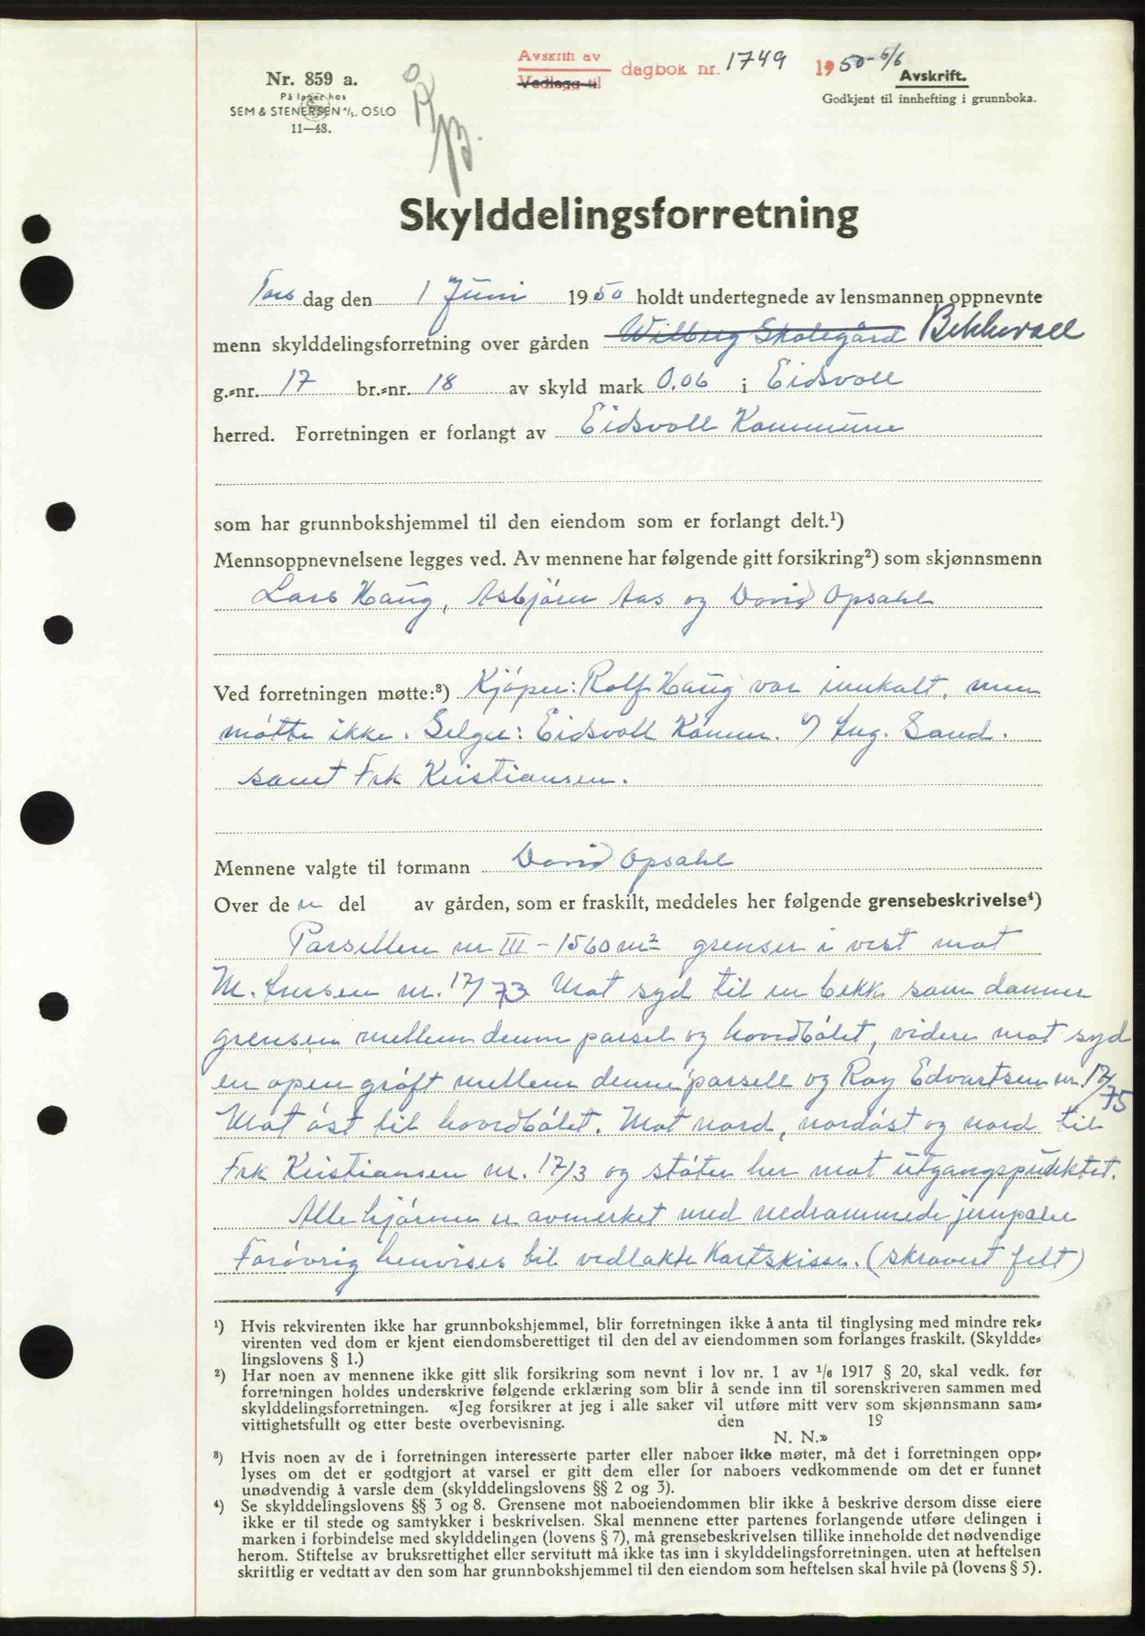 Avskrift av
Vedlegg til
dagbok nr. 1749 1950-6/6
Nr. 859 a.
På lager hos
SEM & STENERSEN A/S. OSLO
11—48.
Avskrift.
Godkjent til innhefting i grunnboka.
Skylddelingsforretning
Tors dag den 1 Juni 1950 holdt undertegnede av lensmannen oppnevnte
menn skylddelingsforretning over gården Wilberg Skolegård Bekkevall
g.-nr. 17 br.-nr. 18 av skyld mark 0.06 i Eidsvoll
herred. Forretningen er forlangt av Eidsvoll Kommune
som har grunnbokshjemmel til den eiendom som er forlangt delt.¹)
Mennsoppnevnelsene legges ved. Av mennene har følgende gitt forsikring²) som skjønnsmenn
Lars Haug, Asbjörn Aas og David Opsahl
Ved forretningen møtte:³) Kjöper: Rolf Haug var innkalt, men
møtte ikke. Selger: Eidsvoll Komm. v/ Ing. Sand.
samt Frk Kristiansen.
Mennene valgte til formann David Opsahl
Over de n del av gården, som er fraskilt, meddeles her følgende grensebeskrivelse⁴)
Parsellen nr III - 1560 m² grenser i vest mot
M. Larsen nr. 17/73 Mot syd til en bekk som danner
grensen mellem denne parsel og hovedbölet, videre mot syd
en open gröft mellem denne parsell og Roy Edvartsen nr. 17/75
Mot öst til hovedbölet. Mot nord, nordöst og nord til
Frk Kristiansen nr. 17/3 og stöter her mot utgangspunktet.
Alle hjörner er avmerket med nedrammede jernpeler
Forövrig henvises til vedlakte Kartskisse. (skravert felt)
¹) Hvis rekvirenten ikke har grunnbokshjemmel, blir forretningen ikke å anta til tinglysing med mindre rek-
virenten ved dom er kjent eiendomsberettiget til den del av eiendommen som forlanges fraskilt. (Skyldde-
lingslovens § 1.)
²) Har noen av mennene ikke gitt slik forsikring som nevnt i lov nr. 1 av 1/6 1917 § 20, skal vedk. før
forretningen holdes underskrive følgende erklæring som blir å sende inn til sorenskriveren sammen med
skylddelingsforretningen. «Jeg forsikrer at jeg i alle saker vil utføre mitt verv som skjønnsmann sam-
vittighetsfullt og etter beste overbevisning. den 19
N. N.»
³) Hvis noen av de i forretningen interesserte parter eller naboer ikke møter, må det i forretningen opp-
lyses om det er godtgjort at varsel er gitt dem eller for naboers vedkommende om det er funnet
unødvendig å varsle dem (skylddelingslovens §§ 2 og 3).
⁴) Se skylddelingslovens §§ 3 og 8. Grensene mot naboeiendommen blir ikke å beskrive dersom disse eiere
ikke er til stede og samtykker i beskrivelsen. Skal mennene etter partenes forlangende utføre delingen i
marken i forbindelse med skylddelingen (lovens § 7), må grensebeskrivelsen tillike inneholde det nødvendige
herom. Stiftelse av bruksrettighet eller servitutt må ikke tas inn i skylddelingsforretningen, uten at heftelsen
skriftlig er vedtatt av den som har grunnbokshjemmel til den eiendom som heftelsen skal hvile på (lovens § 5).